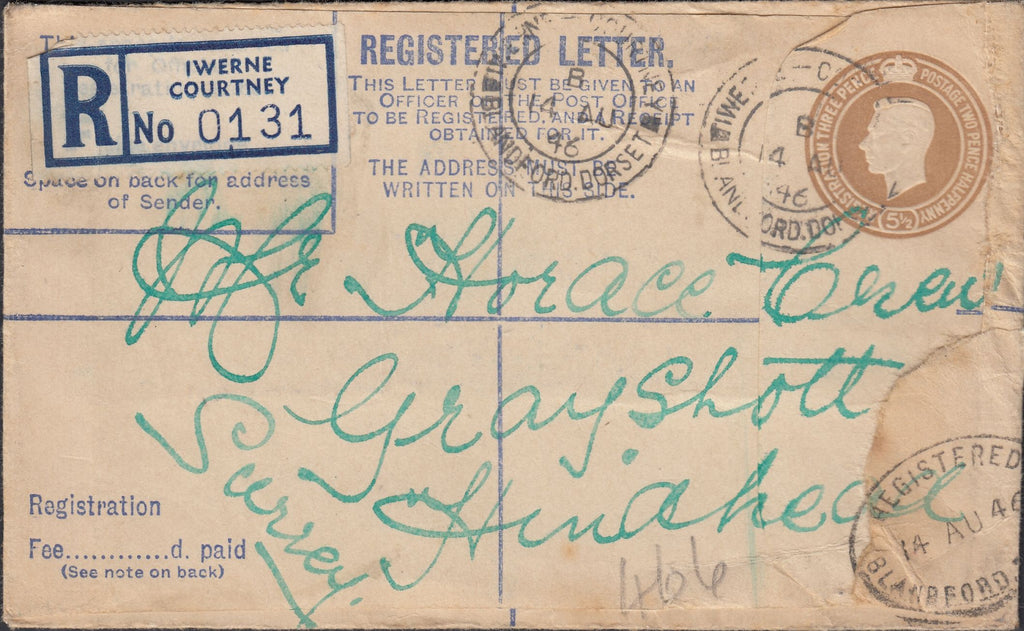 R
IWERNE
COURTNEY
No 0131
Space on back for address
of Sender.
REGISTERED LETTER.
THIS LETTER MUST BE GIVEN TO AN
OFFICER OF THE POST OFFICE
TO BE REGISTERED, AND A RECEIPT
OBTAINED FOR IT.
THE ADDRESS MUST BE
WRITTEN ON THIS SIDE.
B
14 AU
46
BLANDFORD. DORSET
B
14 AU
46
POSTAGE TWO PENCE HALFPENNY
THREE PENCE
5½
Mr Horace
Grayshott
Hindhead
Surrey.
Registration
Fee............d. paid
(See note on back)
466
REGISTERED
14 AU 46
BLANDFORD.